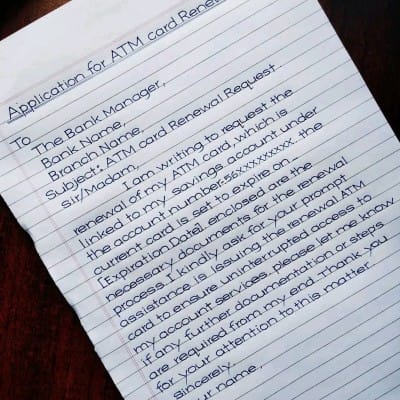 Application for ATM card Renew
To
The Bank Manager,
Bank Name,
Branch Name,
Subject: ATM card Renewal Request
sir/Madam,
I am writing to request the
renewal of my ATM card, which is
linked to my savings account under
the account number-56xxxxxxxxxx. the
current card is set to expire on
[Expiration Date]. enclosed are the
necessary documents for the renewal
process. I kindly ask for your prompt
assistance is issuing the renewal ATM
card to ensure uninterrupted access to
my account services. please let me know
if any further documentation or steps
are required from my end. Thank you
for your attention to this matter.
sincerely,
ur name,